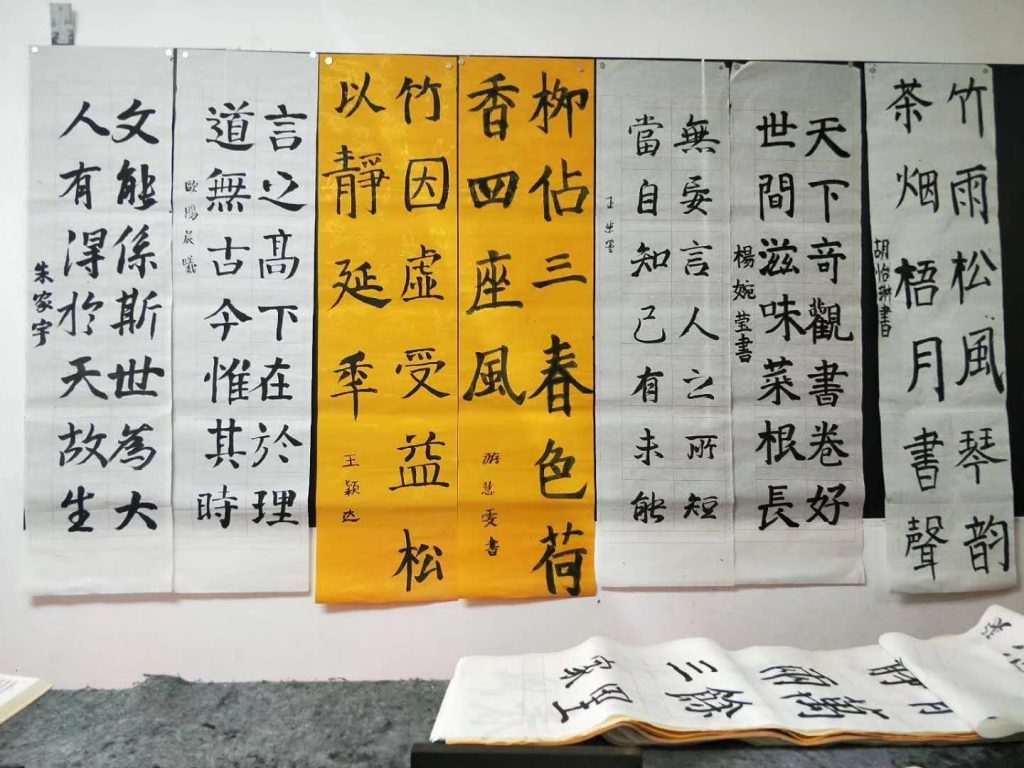 竹雨松風琴韵
茶烟梧月書聲
胡怡琳書
天下奇觀書卷好
世間滋味菜根長
楊婉莹書
無妄言人之所短
當自知己有未能
柳佔三春色荷
香四座風
游慧雯書
竹因虛受益松
以靜延年
王颖达
言之髙下在於理
道無古今惟其時
歐陽辰曦
文能係斯世為大
人有得於天故生
朱家宇
三餘